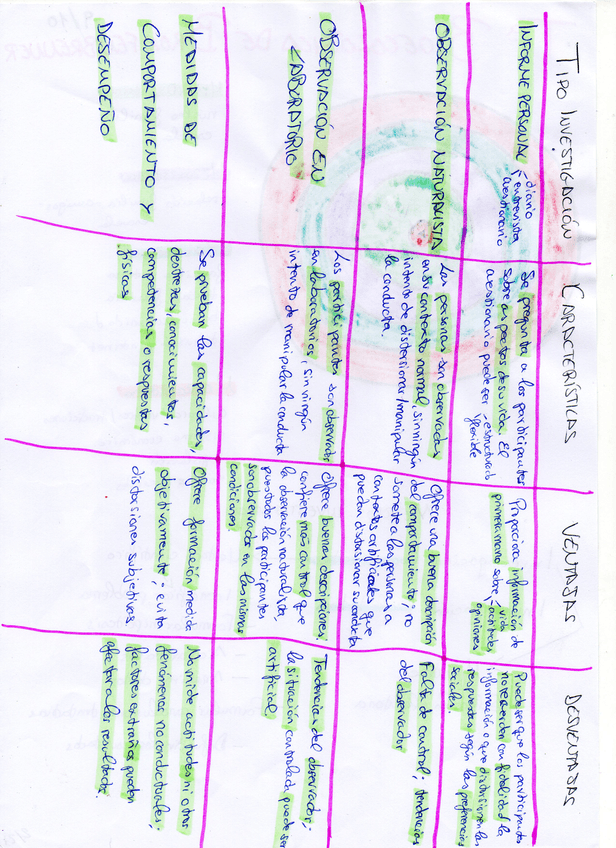 TIPO INVESTIGACIÓN
CARACTERÍSTICAS
VENTAJAS
DESVENTAJAS
INFORME PERSONAL
diario
entrevista
cuestionario
Se pregunta a los participantes
sobre aspectos de su vida. El
cuestionario puede ser
estructurado
flexible
Proporciona información de
primera mano sobre
vida
actitudes
opiniones
Puede ser que los participantes
no recuerden con fidelidad la
información o que distorsionen las
respuestas según las preferencias
sociales.
OBSERVACIÓN NATURALISTA
Las personas son observadas
en su contexto normal, sin ningún
intento de distorsionar/manipular
la conducta.
Ofrece una buena descripción
del comportamiento; no
somete a las personas a
contextos artificiales que
puedan distorsionar su conducta
Falta de control; tendencias
del observador
OBSERVACIÓN EN
LABORATORIO
Los participantes son observados
en laboratorios, sin ningún
intento de manipular la conducta
Ofrece buenas descripciones;
confiere más control que
la observación naturalista,
puesto q los participantes
son observados en las mismas
condiciones
Tendencias del observador;
la situación controlada puede ser
artificial.
MEDIDAS DE
COMPORTAMIENTO Y
DESEMPEÑO
Se prueban las capacidades,
destrezas, conocimientos,
competencias o respuestas
físicas
Ofrece información medida
objetivamente; evita
distorsiones subjetivas.
No mide actitudes ni otros
fenómenos no conductuales;
factores extraños pueden
afectar a los resultados.